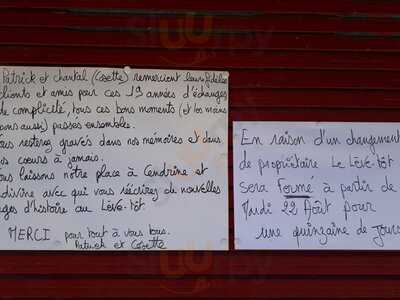 Patrick et chantal (Cosette) remercient leurs fidèles
clients et amis pour ces 19 années d'échanges
de complicité, tous ces bons moments (et les moins
bons aussi) passés ensembles.
vous resterez gravés dans nos mémoires et dans
nos coeurs à jamais.
nous laissons notre place à Cendrine et
Ludivine avec qui vous réécrirez de nouvelles
pages d'histoire au Lève-tôt
MERCI pour tout à vous tous.
Patrick et Cosette
En raison d'un changement
de propriétaire Le Lève-tôt
sera Fermé à partir de
Mardi 22 Août pour
une quinzaine de jours